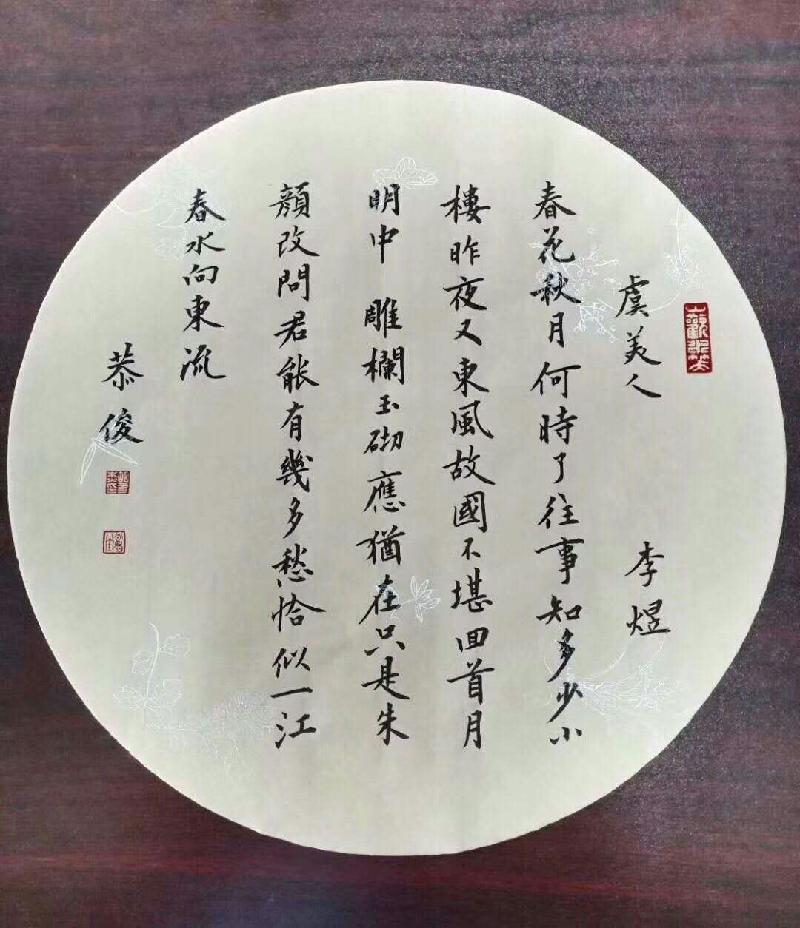 虞美人 李煜
春花秋月何時了往事知多少小
樓昨夜又東風故國不堪回首月
明中 雕欄玉砌應猶在只是朱
顏改問君能有幾多愁恰似一江
春水向東流
恭俊